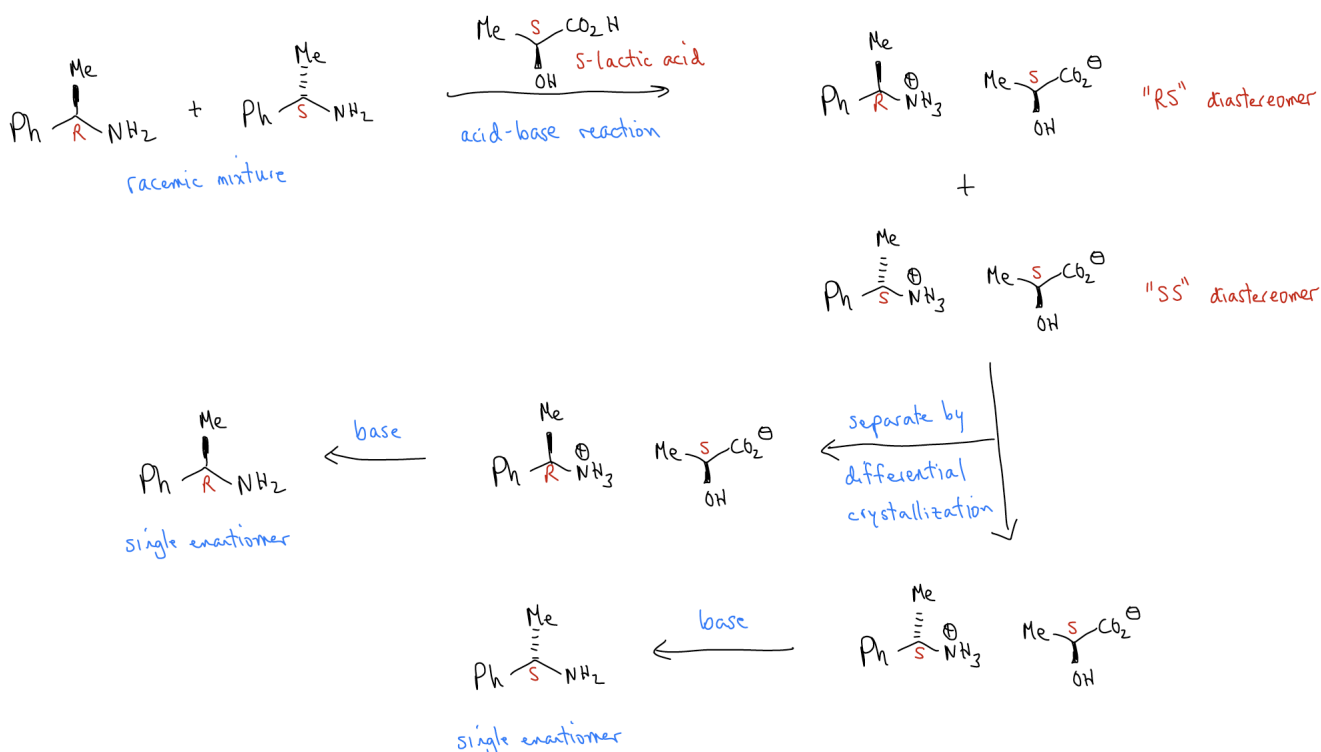 Me S CO2H
OH S-lactic acid
Me
Ph R NH2
+
Me
Ph S NH2
racemic mixture
acid-base reaction
Me
Ph R ⊕NH3
Me S CO2⊖
OH
"RS" diastereomer
+
Me
Ph S ⊕NH3
Me S CO2⊖
OH
"SS" diastereomer
separate by
differential
crystallization
Me
Ph R ⊕NH3
Me S CO2⊖
OH
base
Me
Ph R NH2
single enantiomer
Me
Ph S ⊕NH3
Me S CO2⊖
OH
base
Me
Ph S NH2
single enantiomer